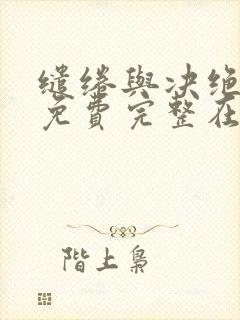 缱绻與决绝
免費完整在
階上梟